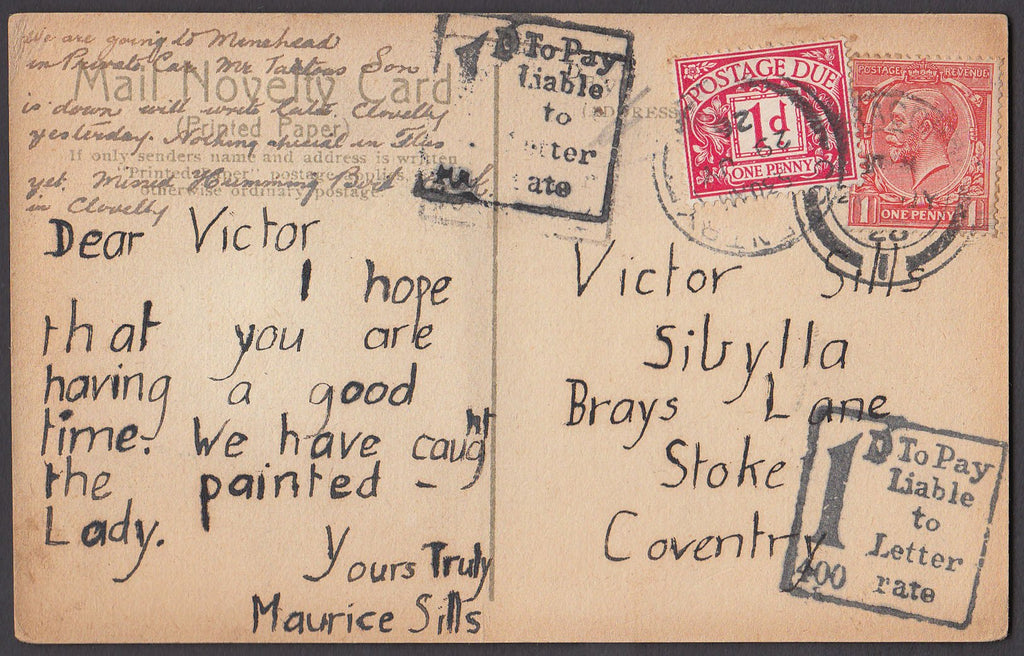 We are going to Minehead
in Private Car. Mr Son
is down will write later Clovelly
yesterday. Nothing special in Flies
yet, Missed Humming Bird Hawk
in Clovelly
Mail Novelty Card
(Printed Paper)
If only senders name and address is written
"Printed Paper" postage applies,
otherwise ordinary postage.
Dear Victor
I hope
that you are
having a good
time. We have caught
the painted -
Lady.
Yours Truly
Maurice Sills
1D To Pay
Liable
to
Letter
rate
(ADDRESS
POSTAGE DUE
1d
ONE PENNY
POSTAGE REVENUE
1 ONE PENNY 1
Victor Sills
Sibylla
Brays Lane
Stoke
Coventry
1D To Pay
Liable
to
Letter
rate
400